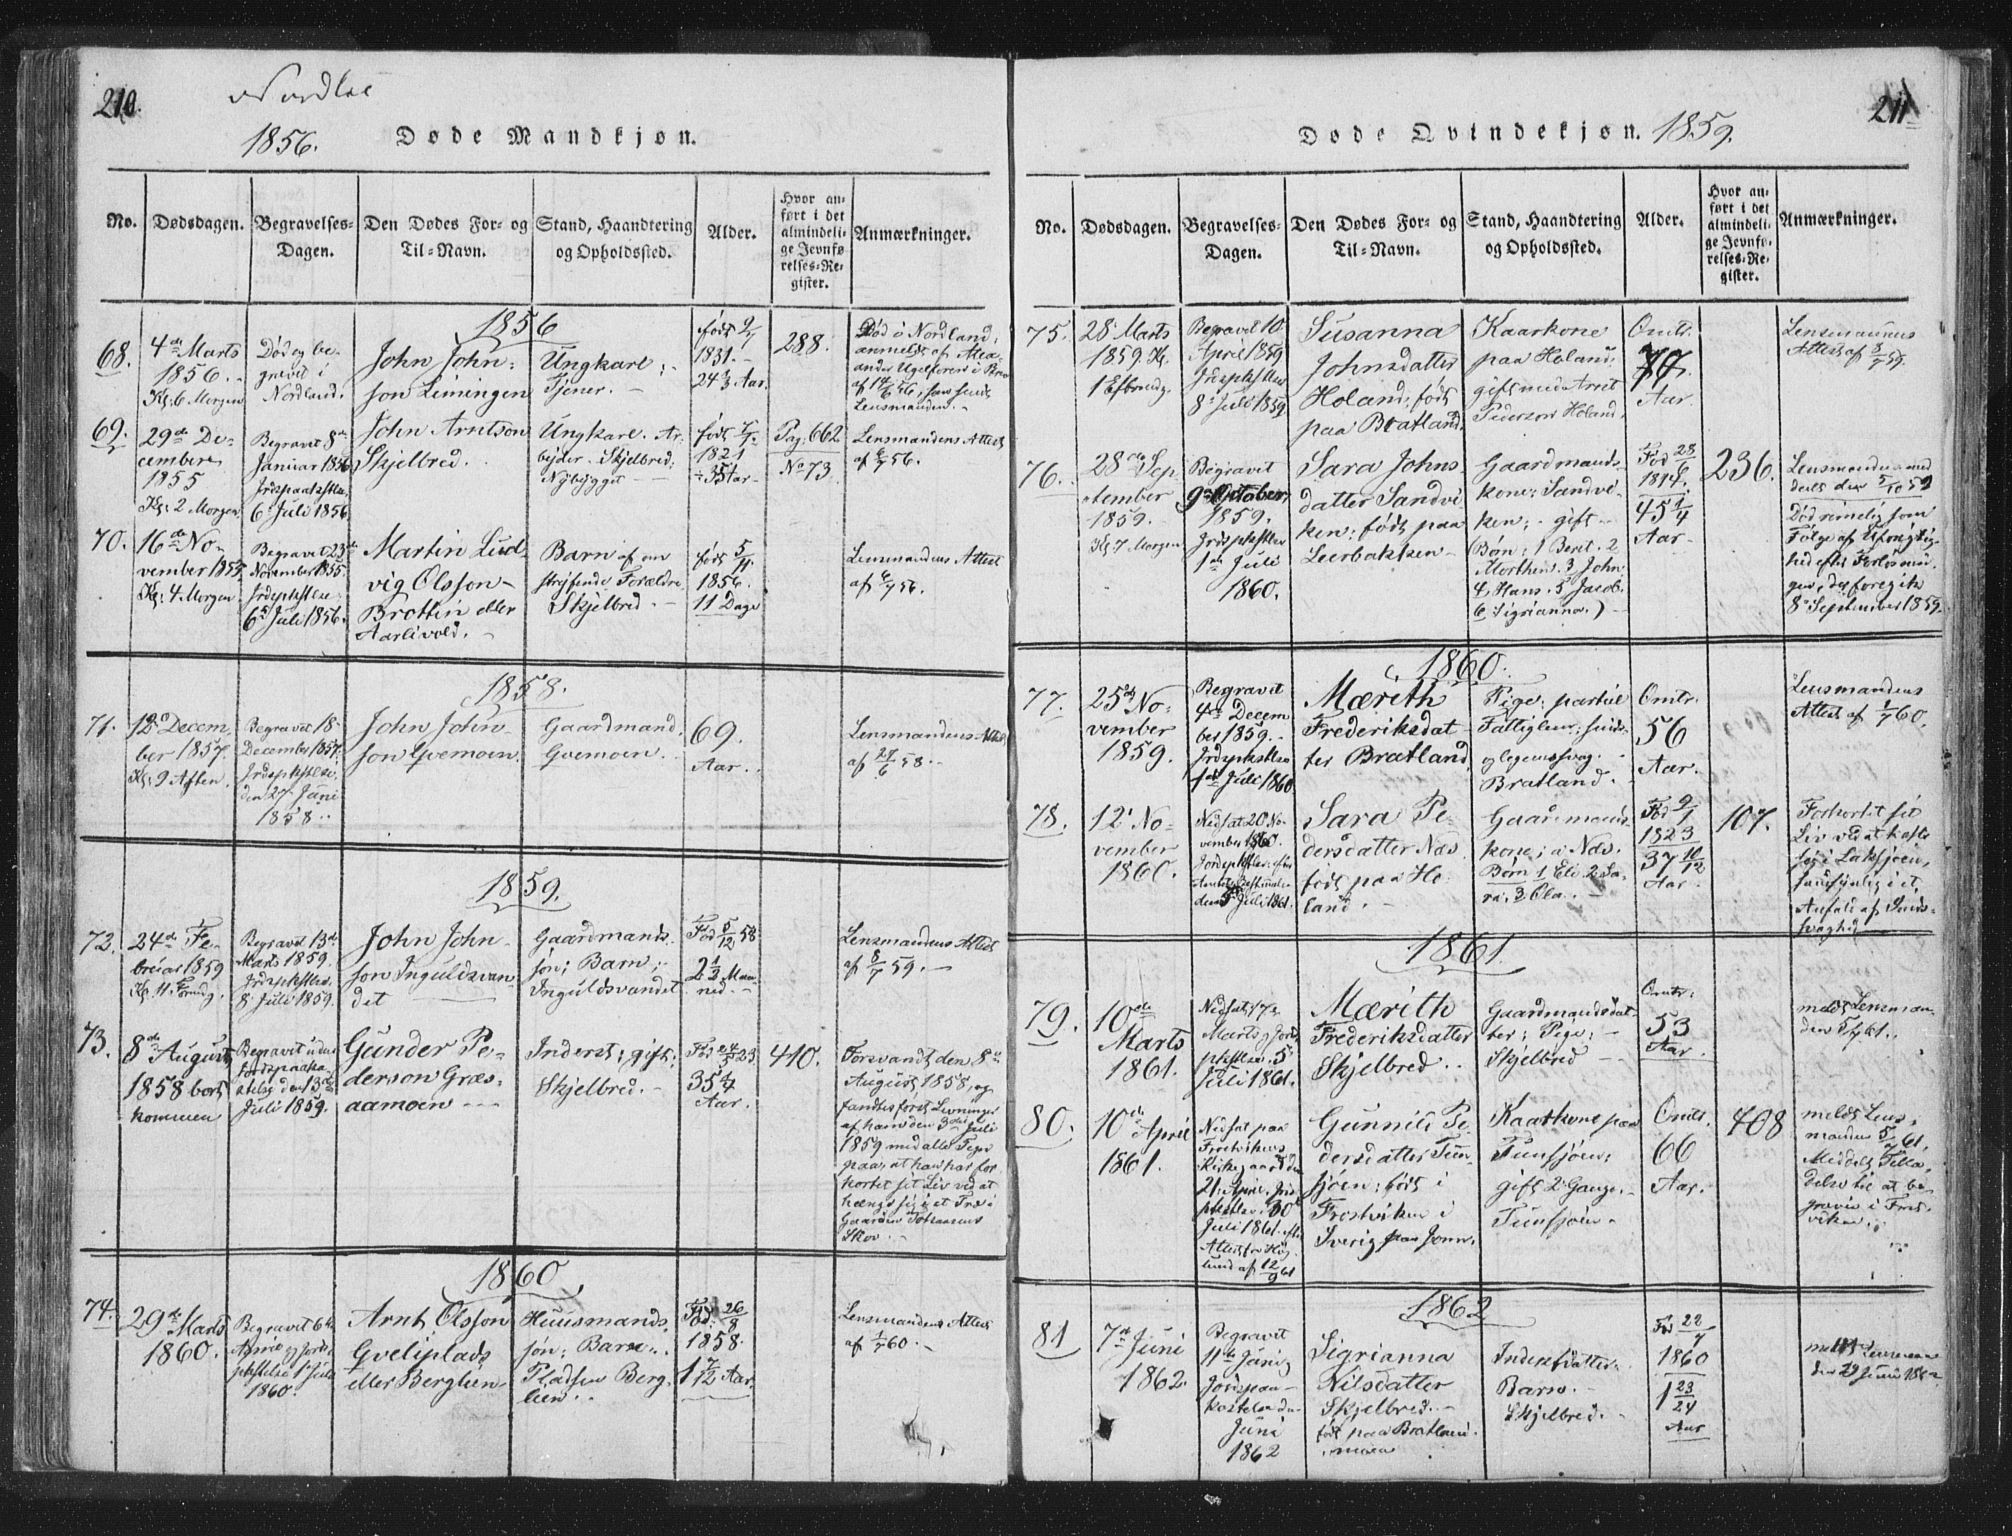 210.
Nordlie
1856. Døde Mandkjøn.
No. Dødsdagen. Begravelses-Dagen. Den Dødes For- og Til-Navn. Stand, Haandtering og Opholdssted. Alder. Hvor anført i det almindelige Jevnførelses-Register. Anmærkninger.
1856
68.
4de Marts
1856.
Kl: 6 Morgen
Død og be-
gravet i
Nordland.
John John-
son Limingen
Ungkarl;
Tjener.
født 9/7
1831.
24 2/3 Aar.
288.
Død i Nordland,
Lensmanden.
69.
29de De-
cember
1855
Kl: 2 Morgen
Begravet 8de
Januar 1856
Jordspaakastelse
6te Juli 1856
John Arntson
Skjelbred.
Ungkarl. Ar-
beider. Skjelbred;
Nybygget
født
1821
35 Aar.
Pag: 662
No 73.
Lensmandens Attest
af 6/7 56.
70.
16de No-
vember 1855.
Kl: 4 Morgen
Begravet 23de
November 1855.
Jordspkstelse
6te Juli 1856.
Martin Lud-
vig Olsson
Brattin eller
Aarlivold.
Barn af om
strejfende Forældre.
Skjelbred.
født 5/11
1856.
11 Dage
Lensmandens Attest
af 6/7 56.
1858.
71.
12te Decem-
ber 1857.
Kl: 9 Aften.
Begravet 18
December 1857.
Jrdspkstelse
den 27. Juni
1858.
John John-
son Gvemoen.
Gaardmand.
Gvemoen.
69.
Aar.
Lensmandens Attest
af 27/6 58.
1859.
72.
24de Fe-
bruar 1859
Kl. 11 Formdg.
Begravet 13de
Marts 1859.
Jrdspkstelse
8 Juli 1859.
John John-
son Inguldsvan-
det
Gaardmands-
søn; Barn;
Inguldsvandet
Fød 5/12 58
2 2/3 Maa-
ned.
Lensmandens Attest
af 8/7 59.
73.
8de August
1858 bort-
kommen
Begravet uden
Jordspaaka-
stelse den 13de
Juli 1859.
Gunder Pe-
derson Græs-
aamoen
Inderst; gift;
Skjelbred.
Fød 23.
35
Aar.
410.
Forsvandt den 8de
August 1858, og
fandtes først Levninger
af ham den 3die Juli
1859 med alle Tegn
paa, at han har for
kortet sit Liv ved at
hænge sig i et Træ i
Gaarden
Skov.
1860
74.
29de Marts
1860.
Begravet 6te
April og Jords-
pkstelse 1 Juli
1860
Arnt Olsson
Gveliplads
eller Berglien
Huusmands-
søn; Barn.
Pladsen Berg-
lien.
Fød: 26/8
1858.
1 7/12 Aar.
Lensmandens Attest
af 1/7 60.
211
Døde Qvindekjøn. 1859.
No. Dødsdagen. Begravelses-Dagen. Den Dødes For- og Til-Navn. Stand, Haandtering og Opholdssted. Alder. Hvor anført i det almindelige Jevnførelses-Register. Anmærkninger.
75.
28 Marts
1859 Kl.
1 Eftrmdg.
Begravet 10
April 1859
Jrdspkstlse
8de Juli 1859
Susanna
Johnsdatter
Holand; født
paa Bratland.
Kaarkone
paa Holand;
gift med Arnt
Pederson Holand.
Omtr.
70.
Aar.
Lensmandens
Attest af 8/7 59.
76.
28de Sep-
tember
1859.
Kl 7 Morgen
Begravet
9de October
1859.
Jrdspkstlse
1ste Juli
1860.
Sara Johns-
datter Sandvi-
ken; født paa
Leerbakken
Gaardmands-
kone; Sandvi-
ken; gift
Børn: 1 Berit. 2
Morthen. 3 John
4 Hans. 5 Jacob.
6 Sigrianna.
Fød 28/6
1814.
45 1/4
Aar
236.
Lensmanden med
deelt den 5/10 59
Død rimelig som
Følge af Uforsigtig-
hed efter Forløsnin-
gen, der foregik
8de September 1859.
1860.
77.
25de No-
vember
1859.
Begravet
4de Decem-
ber 1859.
Jrdspkstlse
1ste Juli 1860
Mærith
Frederiksdat-
ter Bratland.
Pige; partiel
Fattiglem; sinds-
og legemssvag.
Bratland.
Omtr.
56
Aar.
Lensmandens
Attest af 1/7 60.
78.
12te No-
vember
1860.
Nedsat 20 No-
vember 1860.
Jordspkstlse efter
den 5 Juli 1861.
Sara Pe-
dersdatter Næs.
født paa Ho-
land.
Gaardmands-
kone; Næs.
Børn 1 Eli. 2 Sa-
ra. 3 Ola.
Fød 9/1
1823
37 10/12
Aar.
107.
Forkortet sit
Liv ved at kaste
sig i Laksjøen,
sandsynlig i et
Anfald af Sinds-
svaghed.
1861.
79.
10de
Marts
1861.
Nedsat 17de
Marts og Jords-
pkstlse. 5
Juli 1861.
Mærith
Frederiksdatter
Skjelbred.
Gaardmandsdat-
ter; Pige;
Skjelbred
Omtr:
53
Aar.
meldt Lensman-
den 5/7 61.
80.
10de April
1861.
Nedsat paa
Frostvikens
Kirkegaard den
21. April. Jrds-
pkstlse.
Juli 1861. efter
Attest fra Hög-
lund af 12/9 61
Gunnild Pe-
dersdatter Tun-
sjøen; født i
Frostviken i
Sverig paa Jorm.
Kaarkone paa
Tunsjøen;
gift 2 Gange.
Tunsjøen.
Omtr.
66
Aar.
408
meldt Lens-
manden 5/7 61.
Meddelt Tilla-
delse til at be-
graves i Frost-
viken.
1862
81
7de Juni
1862.
Begravet
11te Juni;
Jordspaa-
kastelse den
Juni
1862
Sigrianna
Nilsdatter
Skjelbred.
født paa Bratland-
smoen
Inderstdatter.
Barn.
Skjelbred.
Fød 22/7
1860
1 23/24
Aar
meldt Lensmanden
den 29 Juni 1862.